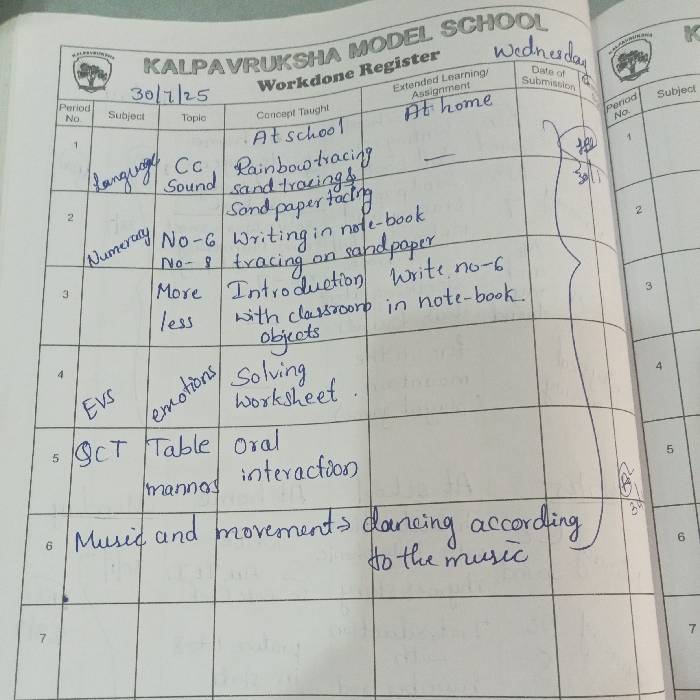 KALPAVRUKSHA MODEL SCHOOL
Workdone Register
Wednesday
30/7/25
Period No. Subject Topic Concept Taught Extended Learning/ Assignment Date of Submission
At school At home
1 Language Cc Rainbow tracing —
Sound sand tracing &
Sand paper tacing
2 Numeracy No-6 Writing in note-book
No-8 tracing on sandpaper
3 More Introduction Write no-6
less with classroom in note-book.
objects
4 EVS emotions Solving
worksheet.
5 SCT Table Oral
mannos interaction
6 Music and movement → dancing according
to the music
7
Period No. Subject
1
2
3
4
5
6
7